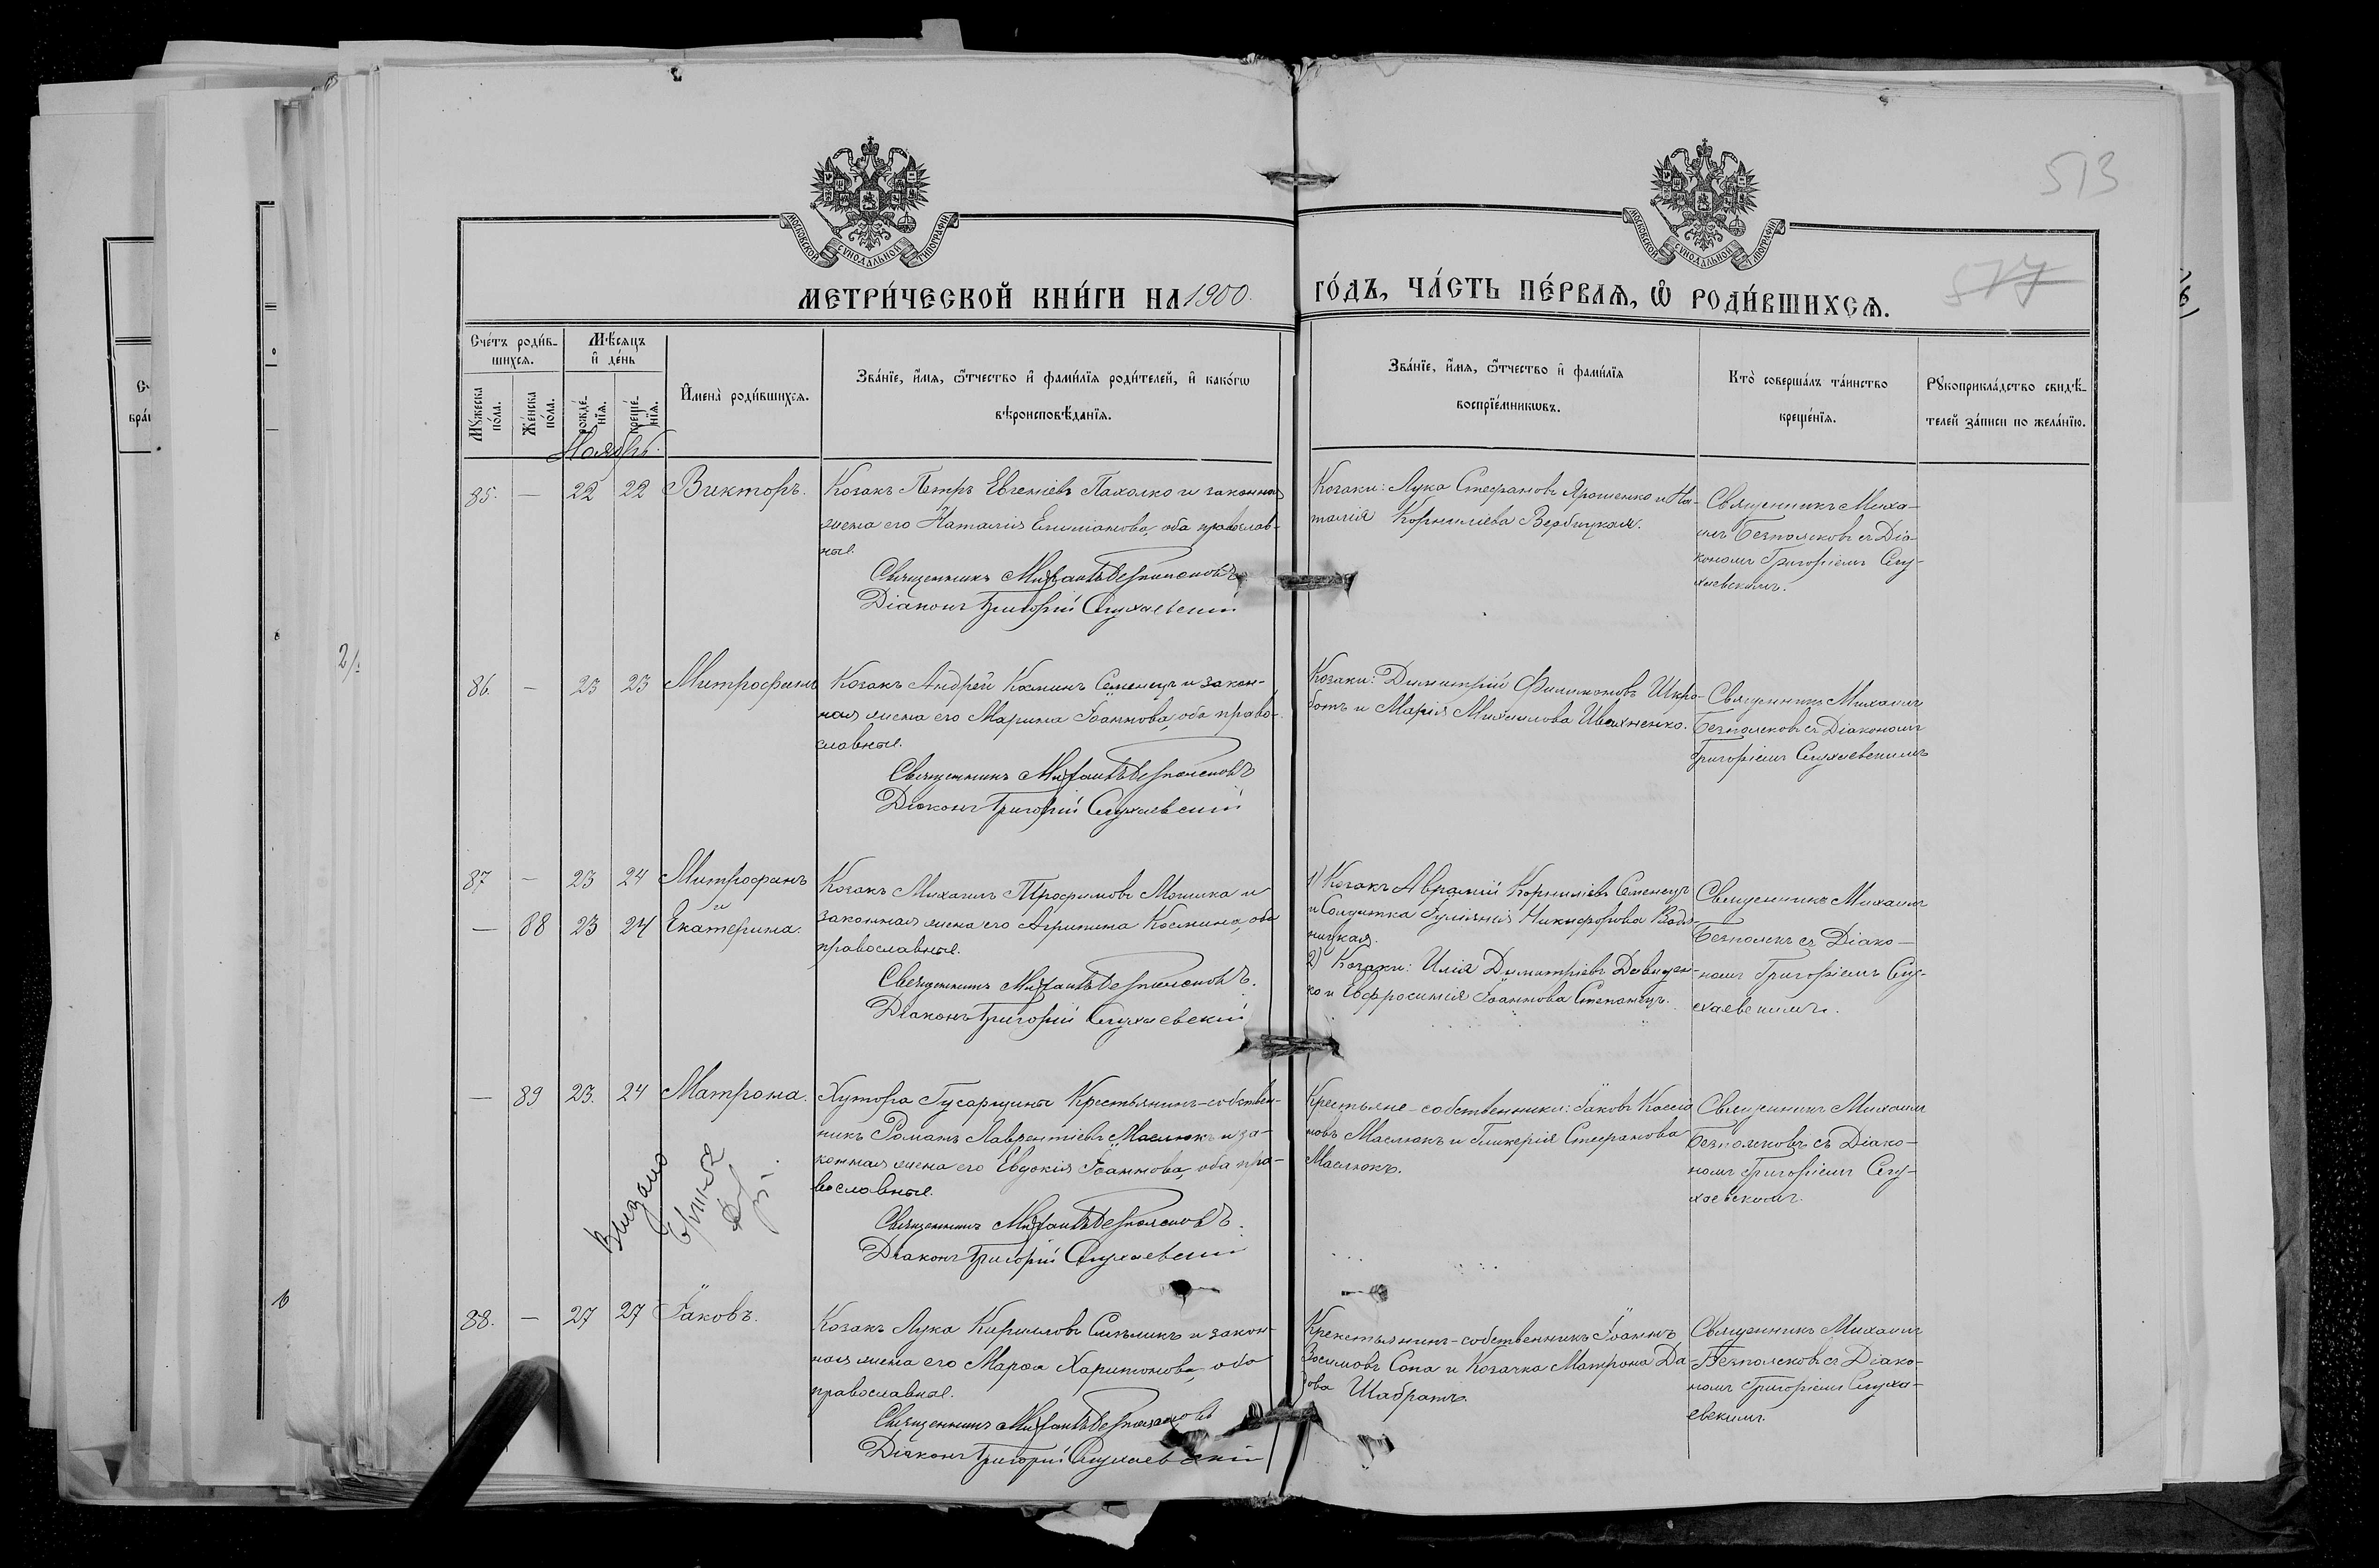 513
577
МОСКОВСКОЙ СѴНОДАЛЬНОЙ ТИПОГРАФІИ
МОСКОВСКОЙ СѴНОДАЛЬНОЙ ТИПОГРАФІИ
МЕТРИ́ЧЕСКОЙ КНИ́ГИ НА 1900. ГО́ДЪ, ЧА́СТЬ ПЕ́РВАѦ, Ѿ РОДИ́ВШИХСѦ.
Сче́тъ роди́в-
шихсѧ.
Мꙋжеска по́ла.
Же́нска по́ла.
Мѣ́сяцъ
и҆ де́нь
рожде́-
нїѧ.
креще́-
нїѧ.
И҆мена̀ роди́вшихсѧ.
Зва́нїе, и҆́мѧ, ѻ҆́тчество и҆ фами́лїѧ роди́телей, и҆ како́гѡ
вѣроисповѣ́данїѧ.
Зва́нїе, и҆́мѧ, ѻ҆́тчество и҆ фами́лїѧ
воспрїе́мникѡвъ.
Кто̀ соверша́лъ та́инство
креще́нїѧ.
Рꙋкоприкла́дство свидѣ́-
телей за́писи по жела́нїю.
Ноябрь.
85. — 22 22 Викторъ.
Козакъ Петръ Евгеніевъ Пахолко и законная
жена его Наталія Емиліанова, оба православ-
ные.
Священникъ Михаилъ Безпалсковъ
Діаконъ Григорій Слухаевскій
Козаки: Лука Стефановъ Ярошенко и На-
талія Корниліева Вербицкая.
Священникъ Миха-
илъ Безпалсковъ съ Діа-
кономъ Григоріемъ Слу-
хаевскимъ.
86. — 23 23 Митрофанъ
Козакъ Андрей Косминъ Семенецъ и закон-
ная жена его Марина Іоаннова, оба право-
славные.
Священникъ Михаилъ Безпалсковъ
Діаконъ Григорій Слухаевскій
Козаки: Димитрій Филимоновъ Шкро-
ботъ и Марія Михаилова Ивахненко.
Священникъ Михаилъ
Безпалсковъ съ Діакономъ
Григоріемъ Слухаевскимъ
87 — 23 24 Митрофанъ
и
— 88 23 24 Екатерина.
Козакъ Михаилъ Трофимовъ Мошка и
законная жена его Агрипина Космина, оба
православные.
Священникъ Михаилъ Безпалсковъ.
Діаконъ Григорій Слухаевскій
1) Козакъ Аврамій Корниліевъ Семенецъ
и Солдатка Іуліанія Никифорова Водя-
ницкая.
2) Козаки: Илія Димитріевъ Давиден-
ко и Евфросинія Іоаннова Степанецъ.
Священникъ Михаилъ
Безпалскъ съ Діако-
номъ Григоріемъ Слу-
хаевскимъ.
— 89 23. 24 Матрона.
Хутора Гусарщины Крестьянинъ-собствен-
никъ Романъ Лаврентіевъ Маслюкъ и за-
конная жена его Евдокія Іоаннова, оба пра-
вославные.
Священникъ Михаилъ Безпалсковъ.
Діаконъ Григорій Слухаевскій
Выдано
Крестьяне-собственники: Іаковъ Кассіа-
новъ Маслюкъ и Гликерія Стефанова
Маслюкъ.
Священникъ Михаилъ
Безпалсковъ съ Діако-
номъ Григоріемъ Слу-
хаевскимъ.
88. — 27 27 Іаковъ.
Козакъ Лука Кирилловъ и закон-
ная жена его Марѳа Харитонова, оба
православные.
Священникъ Михаилъ Безпалсковъ
Діаконъ Григорій Слухаевскій
Крекстьянинъ-собственникъ Іоаннъ
Зосимовъ Сопа и Козачка Матрона Да
Шабратъ.
Священникъ Михаилъ
Безпалсковъ съ Діако-
номъ Григоріемъ Слуха-
евскимъ.